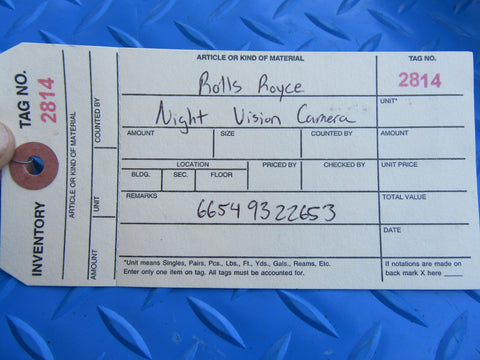 INVENTORY
TAG NO. 2814
ARTICLE OR KIND OF MATERIAL
COUNTED BY
UNIT
AMOUNT
ARTICLE OR KIND OF MATERIAL
Rolls Royce
Night Vision Camera
TAG NO.
2814
UNIT*
AMOUNT SIZE COUNTED BY AMOUNT
LOCATION PRICED BY CHECKED BY UNIT PRICE
BLDG. SEC. FLOOR
REMARKS TOTAL VALUE
66549322653
DATE
*Unit means Singles, Pairs, Pcs., Lbs., Ft., Yds., Gals., Reams, Etc.
Enter only one item on tag. All tags must be accounted for.
If notations are made on
back mark X here